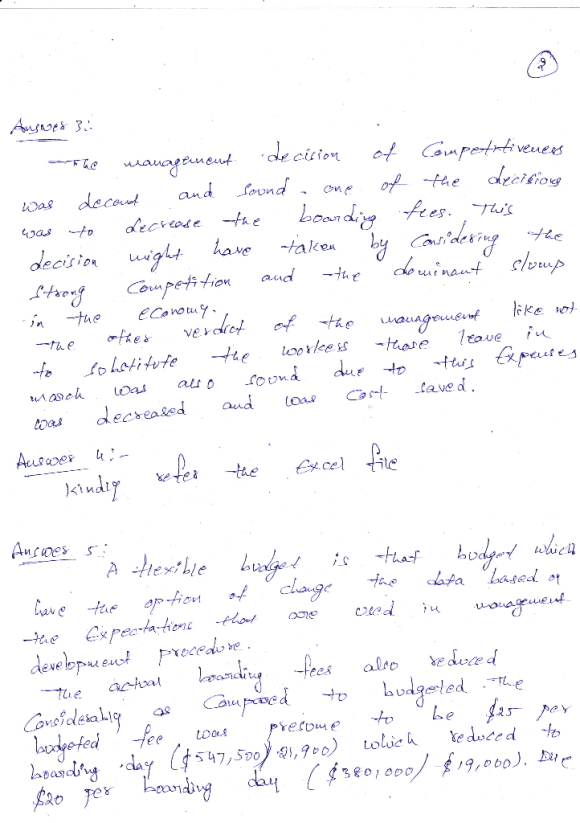 2
Answer 3:-
The management decision of Competitiveness
was decent and sound. one of the decisions
was to decrease the boarding fees. This
decision might have taken by Considering the
strong Competition and the dominant slump
in the economy.
The other verdict of the management like not
to substitute the workers those leave in
march was also sound due to this Expenses
was decreased and was Cost saved.
Answer 4:-
kindly refer the Excel file
Answer 5:
A flexible budget is that budget which
have the option of change the data based on
the Expectations that are used in management
development procedure.
The actual boarding fees also reduced
Considerably as Compared to budgeted. The
budgeted fee was presume to be $25 per
boarding day ($547,500/21,900) which reduced to
$20 per boarding day ($380,000/$19,000). Due